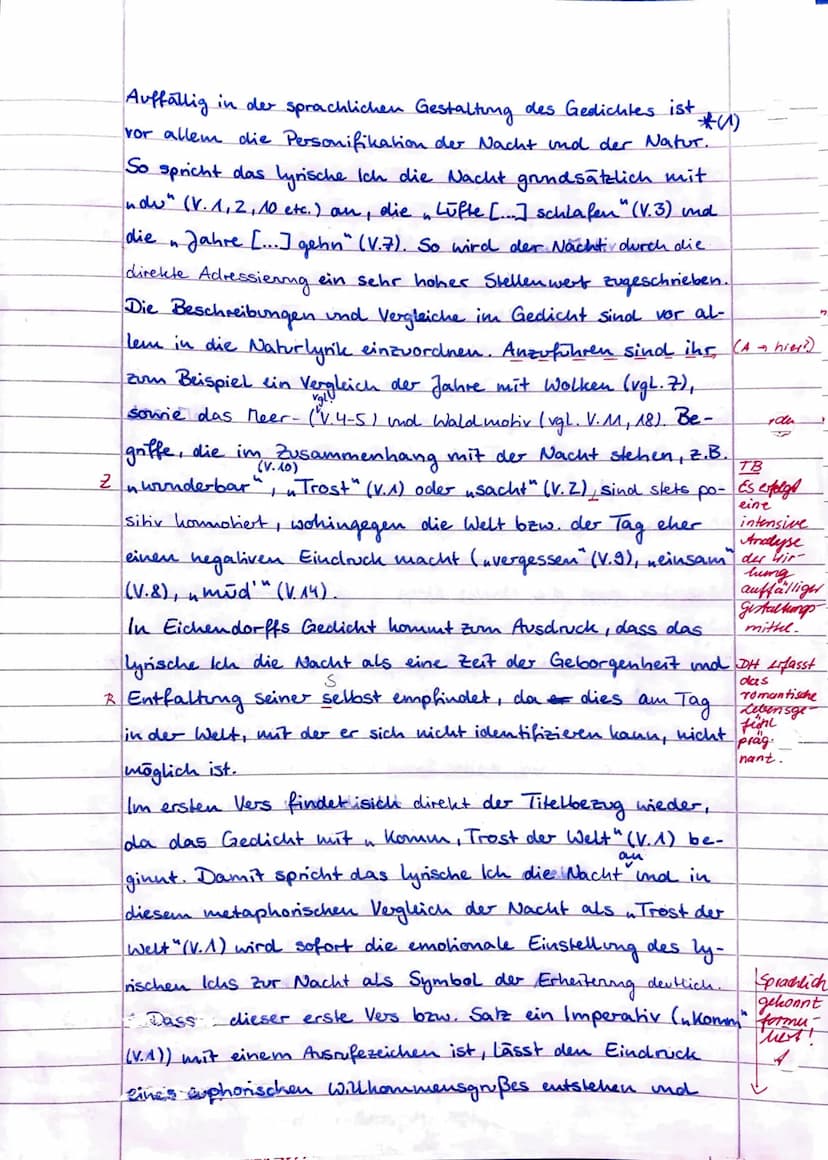 Auffällig in der sprachlichen Gestaltung des Gedichtes ist *(1)
vor allem die Personifikation der Nacht und der Natur.
So spricht das lyrische Ich die Nacht grundsätzlich mit
„du“ (V. 1, 2, 10 etc.) an, die „Lüfte [...] schlafen“ (V.3) und
die „Jahre [...] gehn“ (V.7). So wird der Nacht durch die
direkte Adressierung ein sehr hoher Stellenwert zugeschrieben.
Die Beschreibungen und Vergleiche im Gedicht sind vor al-
lem in die Naturlyrik einzuordnen. Anzuführen sind ihr (A → hier?)
zum Beispiel ein Vergleich der Jahre mit Wolken (vgl. 7),
sowie das Meer- (vgl. V.4-5) und Waldmotiv (vgl. V. 11, 18). Be-
griffe, die im Zusammenhang mit der Nacht stehen, z.B.
Z „wunderbar“ (V.10), „Trost“ (V.1) oder „sacht“ (V.2), sind stets po-
sitiv konnotiert, wohingegen die Welt bzw. der Tag eher
einen negativen Eindruck macht („vergessen“ (V.9), „einsam“
(V.8), „müd'“ (V.14).
TB
Es erfolgt
eine
intensive
Analyse
der Wir-
kung
auffälliger
Gestaltungs-
mittel.
In Eichendorffs Gedicht kommt zum Ausdruck, dass das
lyrische Ich die Nacht als eine Zeit der Geborgenheit und
R Entfaltung seiner selbst empfindet, da er dies am Tag
in der Welt, mit der er sich nicht identifizieren kann, nicht
möglich ist.
S
DH erfasst
das
romantische
Lebensge-
fühl
präg-
nant.
Im ersten Vers findet sich direkt der Titelbezug wieder,
da das Gedicht mit „Komm, Trost der Welt“ (V.1) be-
ginnt. Damit spricht das lyrische Ich die Nacht an und in
diesem metaphorischen Vergleich der Nacht als „Trost der
Welt“ (V.1) wird sofort die emotionale Einstellung des ly-
rischen Ichs zur Nacht als Symbol der Erheiterung deutlich.
Dass dieser erste Vers bzw. Satz ein Imperativ („Komm“
(V.1)) mit einem Ausrufezeichen ist, lässt den Eindruck
eines euphorischen Willkommensgrußes entstehen und
Sprachlich
gekonnt
formu-
liert!